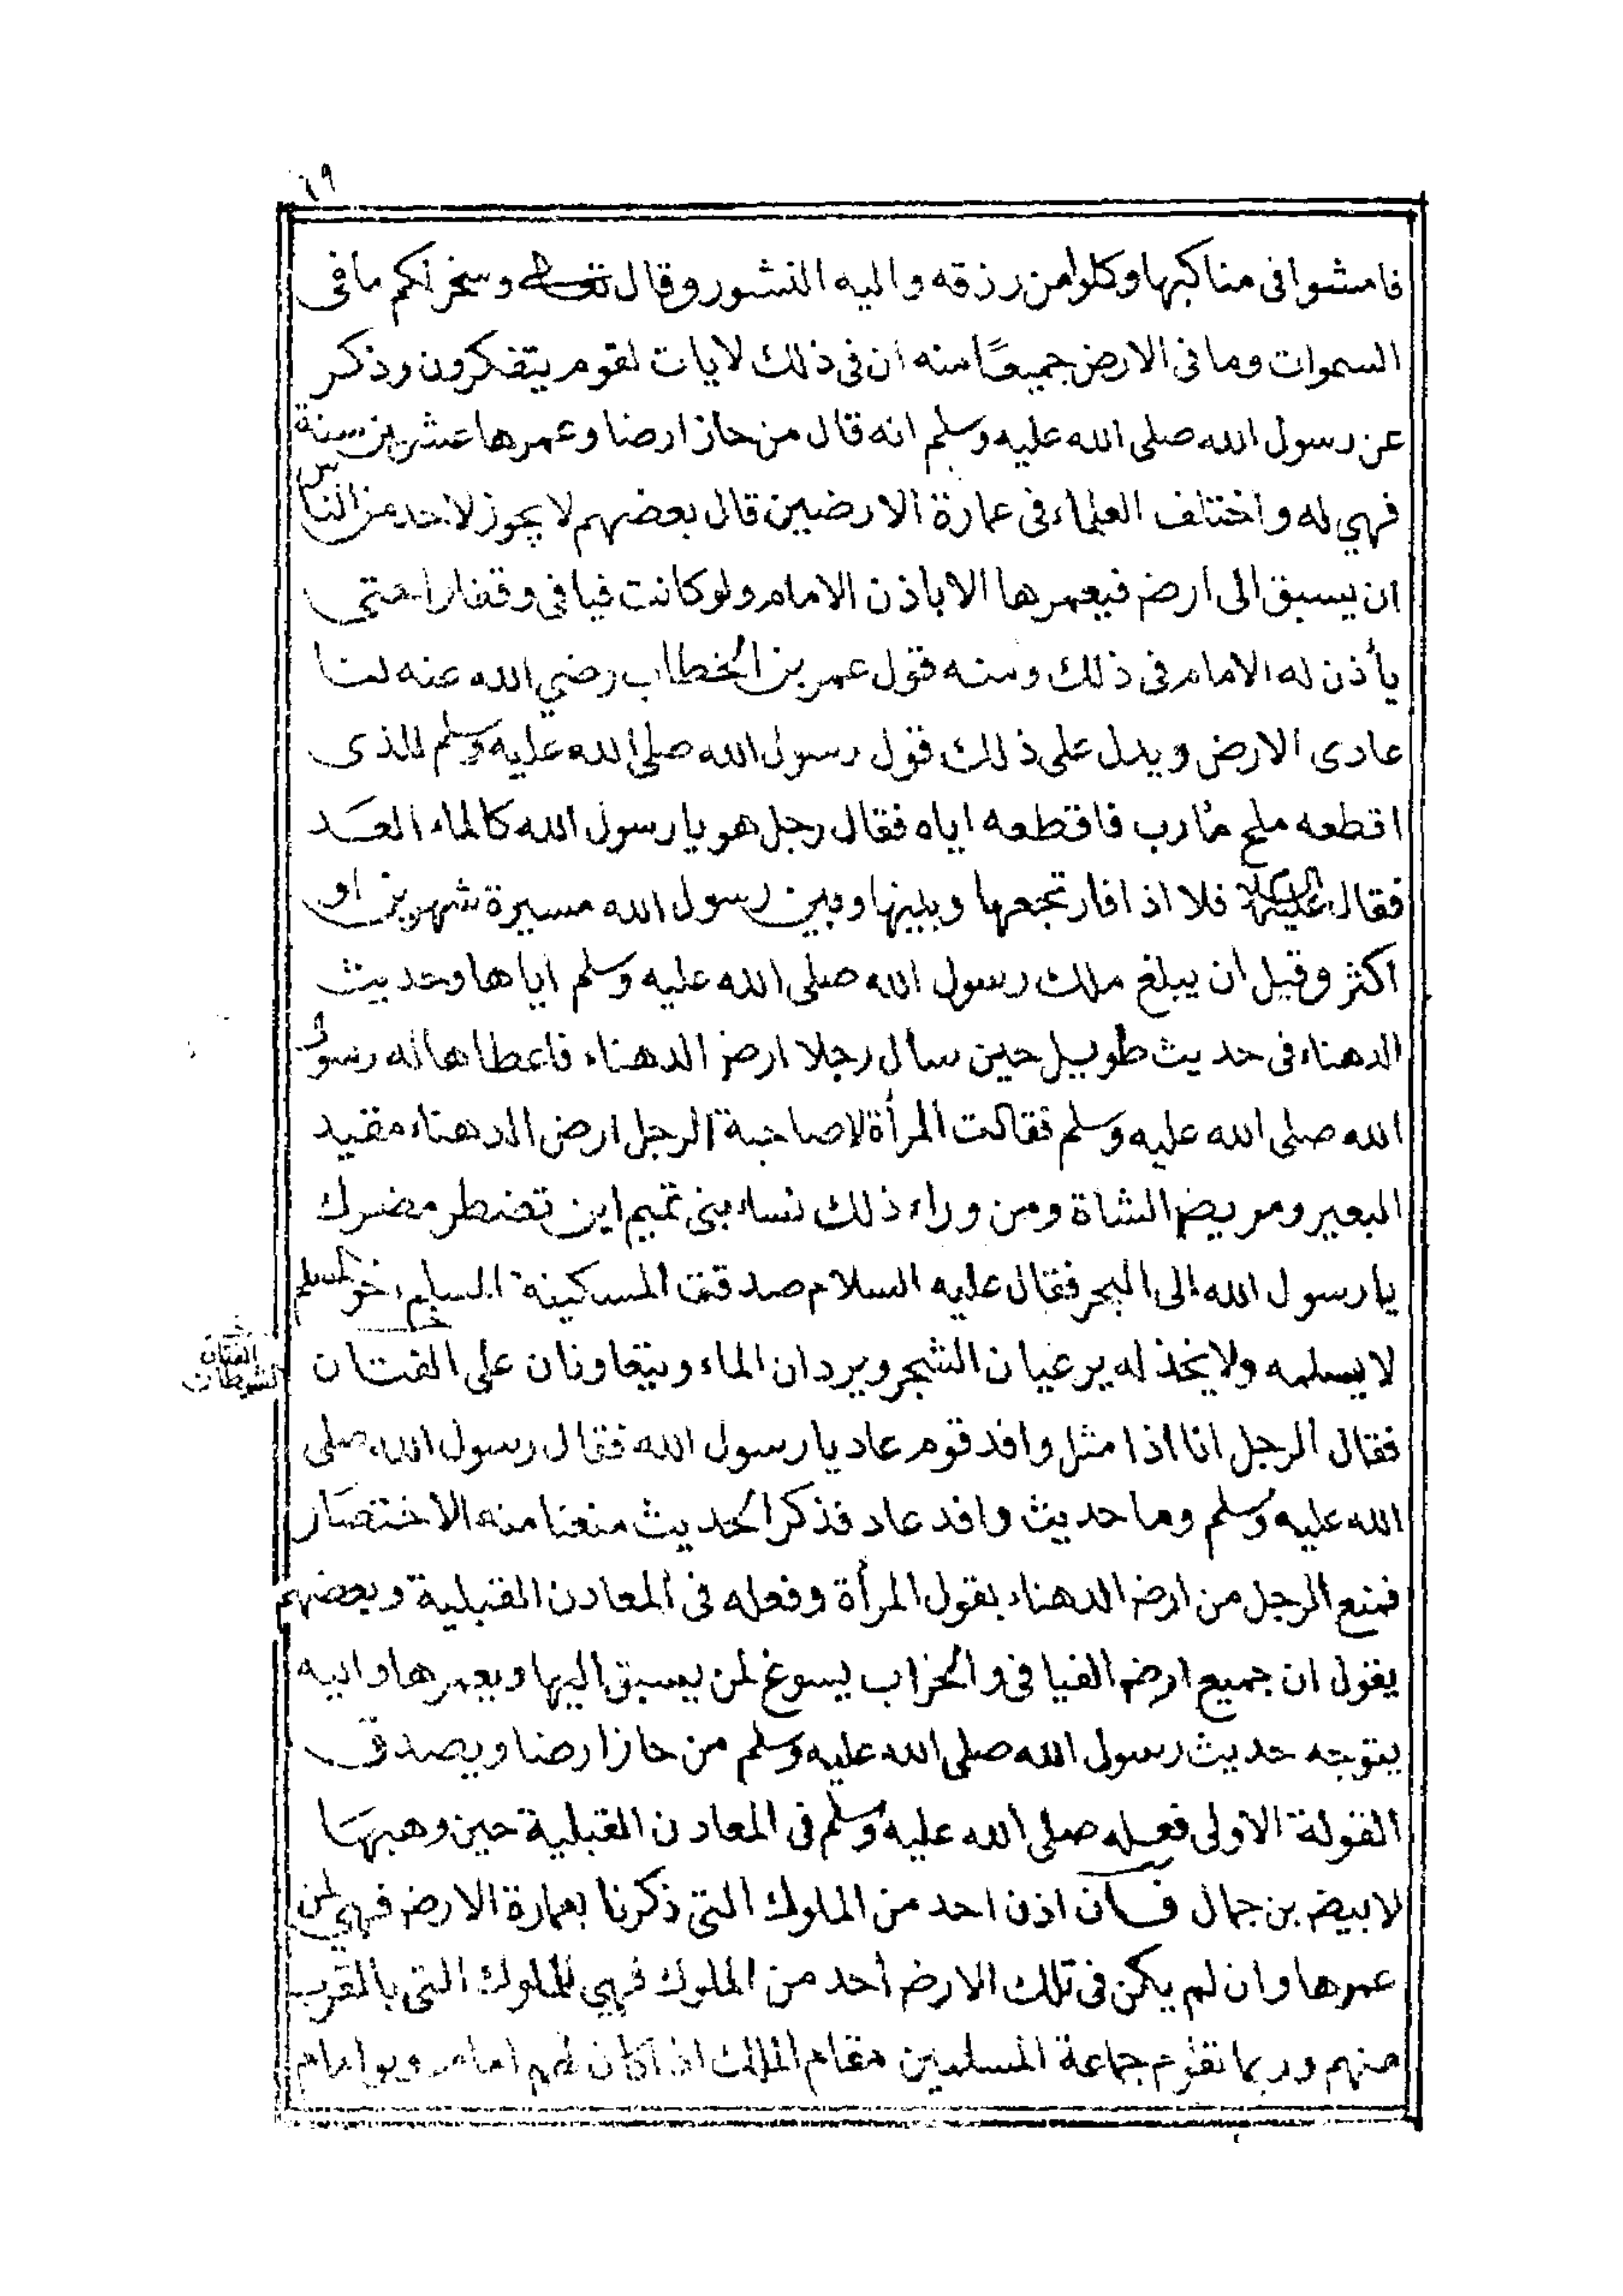 ٦٩
فامشوا فى مناكبها وكلوا من رزقه واليه النشور وقال تعالى وسخر لكم ما فى
السموات وما فى الارض جميعًا منه ان فى ذلك لايات لقوم يتفكرون وذكر
عن رسول الله صلى الله عليه وسلم انه قال من حاز ارضا وعمرها عشرين سنة
فهي له واختلف العلماء فى عمارة الارضين قال بعضهم لا يجوز لاحد من الناس
ان يسبق الى ارض فيعمرها الا باذن الامام ولو كانت فيافى وقفارا حتى
يأذن له الامام فى ذلك ومنه قول عمر بن الخطاب رضي الله عنه لنا
عادى الارض ويدل على ذلك قول رسول الله صلى الله عليه وسلم للذى
اقطعه ملح مأرب فاقطعه اياه فقال رجل هو يا رسول الله كالماء العد
فقال عليه السلام فلا اذا فارتجعها وبينها وبين رسول الله مسيرة شهرين او
اكثر وقبل ان يبلغ ملك رسول الله صلى الله عليه وسلم اياها وحديث
الدهناء فى حديث طويل حين سأل رجلا ارض الدهناء فاعطاها له رسول
الله صلى الله عليه وسلم فقالت المرأة لا صاحبة الرجل ارض الدهناء مقيد
البعير ومريض الشاة ومن وراء ذلك نساء بنى تميم اين تضطر مضرك
يا رسول الله الى البحر فقال عليه السلام صدقت المسكينة المسلم اخو المسلم
لا يسلمه ولا يخذله يرعيان الشجر ويردان الماء ويتعاونان على الفتان
الفتان الشيطان
فقال الرجل انا اذا مثل وافد قوم عاد يا رسول الله فقال رسول الله صلى
الله عليه وسلم وما حديث وافد عاد فذكر الحديث منعنا منه الاختصار
فمنع الرجل من ارض الدهناء بقول المرأة وفعله فى المعادن القبلية وبعضهم
يقول ان جميع ارض الفيافى والخراب يسوغ لمن يسبق اليها ويعمرها واليه
يتوجه حديث رسول الله صلى الله عليه وسلم من حاز ارضا ويصدق
القولة الاولى فعله صلى الله عليه وسلم فى المعادن القبلية حين وهبها
لابيض بن جمال فان اذن احد من الملوك التى ذكرنا بعمارة الارض فهي لمن
عمرها وان لم يكن فى تلك الارض أحد من الملوك فهي للملوك التى بالقرب
منهم وربما تقوم جماعة المسلمين مقام الملك اذا كان لهم امام